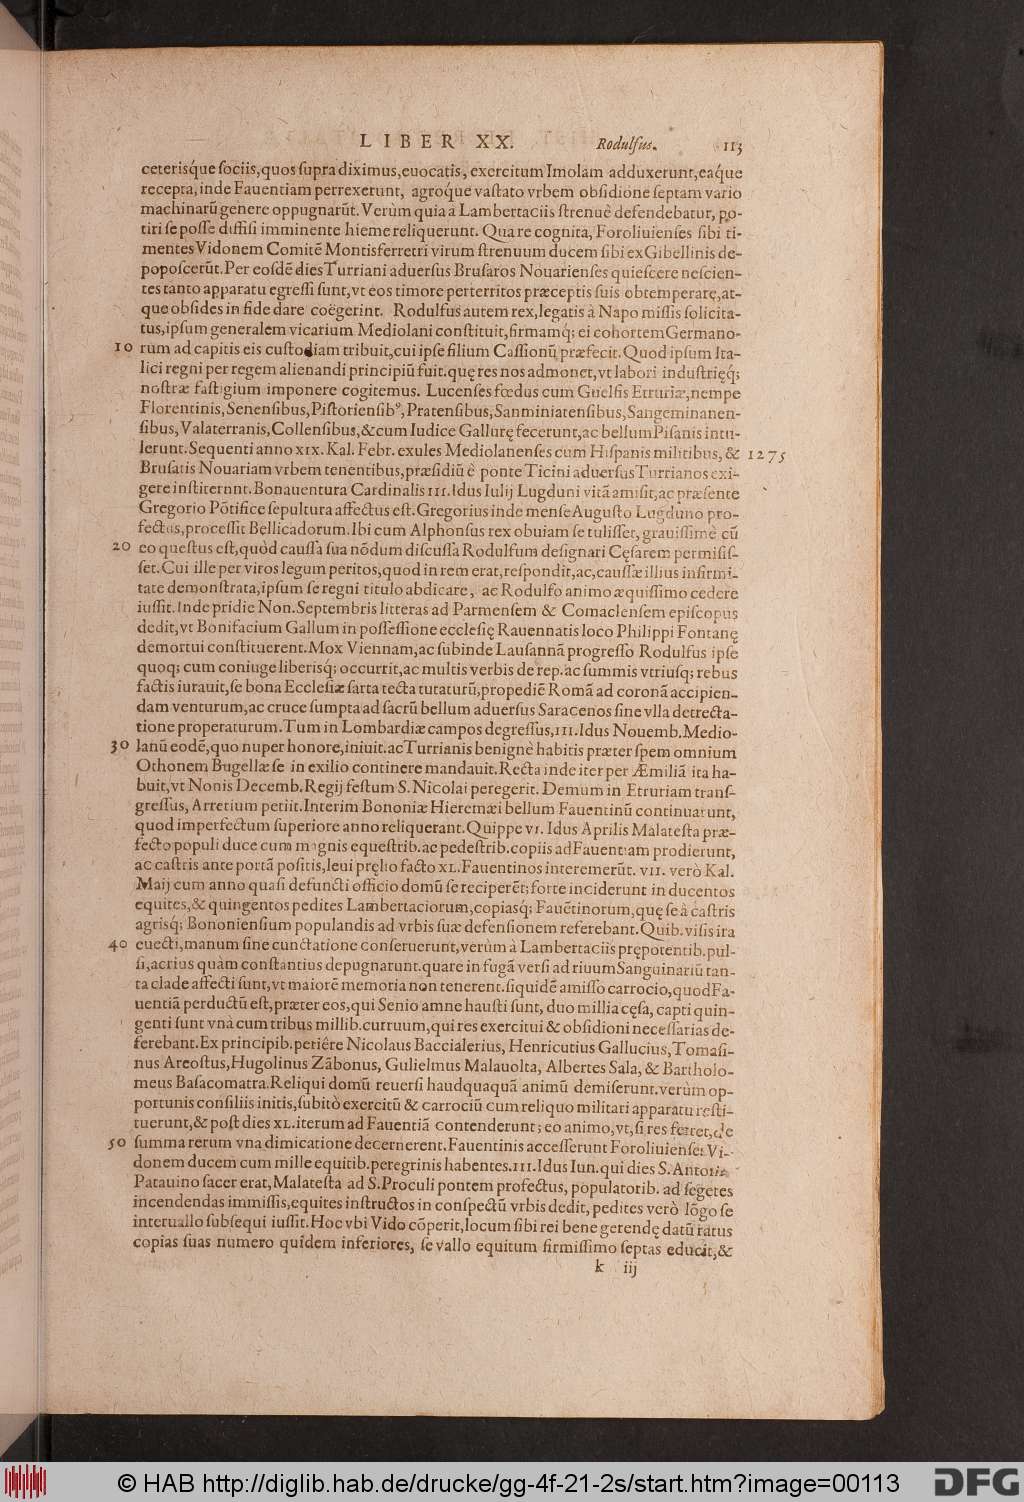 LIBER XX. Rodulfus. 113
ceterisq́ue ſociis, quos ſupra diximus, euocatis, exercitum Imolam adduxerunt, eaq́ue
recepta, inde Fauentiam perrexerunt, agroque vaſtato vrbem obſidione ſeptam vario
machinarū genere oppugnarūt. Verùm quia à Lambertaciis ſtrenuè defendebatur, po-
tiri ſe poſſe diffiſi imminente hieme reliquerunt. Qua re cognita, Foroliuienſes ſibi ti-
mentes Vidonem Comitē Montisferretri virum ſtrenuum ducem ſibi ex Gibellinis de-
popoſcerūt. Per eoſdē dies Turriani aduerſus Bruſatos Nouarienſes quieſcere neſcien-
tes tanto apparatu egreſſi ſunt, vt eos timore perterritos præceptis ſuis obtemperare, at-
que obſides in fide dare coëgerint. Rodulfus autem rex, legatis à Napo miſſis ſolicita-
tus, ipſum generalem vicarium Mediolani conſtituit, firmamq; ei cohortem Germano-
10 rum ad capitis eis cuſtodiam tribuit, cui ipſe filium Caſſionū præfecit. Quod ipſum Ita-
lici regni per regem alienandi principiū fuit. quę res nos admonet, vt labori induſtrięq;
noſtræ faſtigium imponere cogitemus. Lucenſes fœdus cum Guelfis Etruriæ, nempe
Florentinis, Senenſibus, Piſtorienſibꝰ, Pratenſibus, Sanminiatenſibus, Sangeminanen-
ſibus, Valaterranis, Collenſibus, & cum Iudice Gallurę fecerunt, ac bellum Piſanis intu-
lerunt. Sequenti anno XIX. Kal. Febr. exules Mediolanenſes cum Hiſpanis militibus, & 1275
Bruſatis Nouariam vrbem tenentibus, præſidiū è ponte Ticini aduerſus Turrianos exi-
gere inſtiternnt. Bonauentura Cardinalis III. Idus Iulij Lugduni vitā amiſit, ac præſente
Gregorio Pōtifice ſepultura affectus eſt. Gregorius inde menſe Auguſto Lugduno pro-
fectus, proceſſit Bellicadorum. Ibi cum Alphonſus rex obuiam ſe tuliſſet, grauiſſimè cū
20 eo queſtus eſt, quòd cauſſa ſua nōdum diſcuſſa Rodulfum deſignari Cęſarem permiſiſ-
ſet. Cui ille per viros legum peritos, quod in rem erat, reſpondit, ac, cauſſæ illius infirmi-
tate demonſtrata, ipſum ſe regni titulo abdicare, ac Rodulfo animo æquiſſimo cedere
iuſſit. Inde pridie Non. Septembris litteras ad Parmenſem & Comaclenſem epiſcopus
dedit, vt Bonifacium Gallum in poſſeſſione eccleſię Rauennatis loco Philippi Fontanę
demortui conſtituerent. Mox Viennam, ac ſubinde Lauſannā progreſſo Rodulfus ipſe
quoq; cum coniuge liberisq́; occurrit, ac multis verbis de rep. ac ſummis vtriuſq; rebus
factis iurauit, ſe bona Eccleſiæ ſarta tecta tutaturū, propediē Romā ad coronā accipien-
dam venturum, ac cruce ſumpta ad ſacrū bellum aduerſus Saracenos ſine vlla detrecta-
tione properaturum. Tum in Lombardiæ campos degreſſus, III. Idus Nouemb. Medio-
30 lanū eodē, quo nuper honore, iniuit. ac Turrianis benignè habitis præter ſpem omnium
Othonem Bugellæ ſe in exilio continere mandauit. Recta inde iter per Æmiliā ita ha-
buit, vt Nonis Decemb. Regij feſtum S. Nicolai peregerit. Demum in Etruriam tranſ-
greſſus, Arretium petiit. Interim Bononiæ Hieremæi bellum Fauentinū continuarunt,
quod imperfectum ſuperiore anno reliquerant. Quippe VI. Idus Aprilis Malateſta præ-
fecto populi duce cum magnis equeſtrib. ac pedeſtrib. copiis ad Fauentiam prodierunt,
ac caſtris ante portā poſitis, leui pręlio facto XL. Fauentinos interemerūt. VII. verò Kal.
Maij cum anno quaſi defuncti officio domū ſe reciperēt; forte inciderunt in ducentos
equites, & quingentos pedites Lambertaciorum, copiasq́; Fauētinorum, quę ſe à caſtris
agrisq́; Bononienſium populandis ad vrbis ſuæ defenſionem referebant. Quib. viſis ira
40 euecti, manum ſine cunctatione conſeruerunt, verùm à Lambertaciis prępotentib. pul-
ſi, acrius quàm conſtantius depugnarunt. quare in fugā verſi ad riuum Sanguinariū tan-
ta clade affecti ſunt, vt maiorē memoria non tenerent. ſiquidē amiſſo carrocio, quod Fa-
uentiā perductū eſt, præter eos, qui Senio amne hauſti ſunt, duo millia cęſa, capti quin-
genti ſunt vnà cum tribus millib. curruum, qui res exercitui & obſidioni neceſſarias de-
ferebant. Ex principib. periére Nicolaus Baccialerius, Henricutius Gallucius, Tomaſi-
nus Areoſtus, Hugolinus Zābonus, Gulielmus Malauolta, Albertes Sala, & Bartholo-
meus Baſacomatra. Reliqui domū reuerſi haudquaquā animū demiſerunt. verùm op-
portunis conſiliis initis, ſubitò exercitū & carrociū cum reliquo militari apparatu reſti-
tuerunt, & poſt dies XL. iterum ad Fauentiā contenderunt; eo animo, vt, ſi res ferret, de
50 ſumma rerum vna dimicatione decernerent. Fauentinis acceſſerunt Foroliuienſes Vi-
donem ducem cum mille equitib. peregrinis habentes. III. Idus Iun. qui dies S. Antonio
Patauino ſacer erat, Malateſta ad S. Proculi pontem profectus, populatorib. ad ſegetes
incendendas immiſſis, equites inſtructos in conſpectū vrbis dedit, pedites verò lōgo ſe
interuallo ſubſequi iuſſit. Hoc vbi Vido cōperit, locum ſibi rei bene gerendę datū ratus
copias ſuas numero quidem inferiores, ſe vallo equitum firmiſſimo ſeptas educit, &
k iij
© HAB http://diglib.hab.de/drucke/gg-4f-21-2s/start.htm?image=00113 DFG